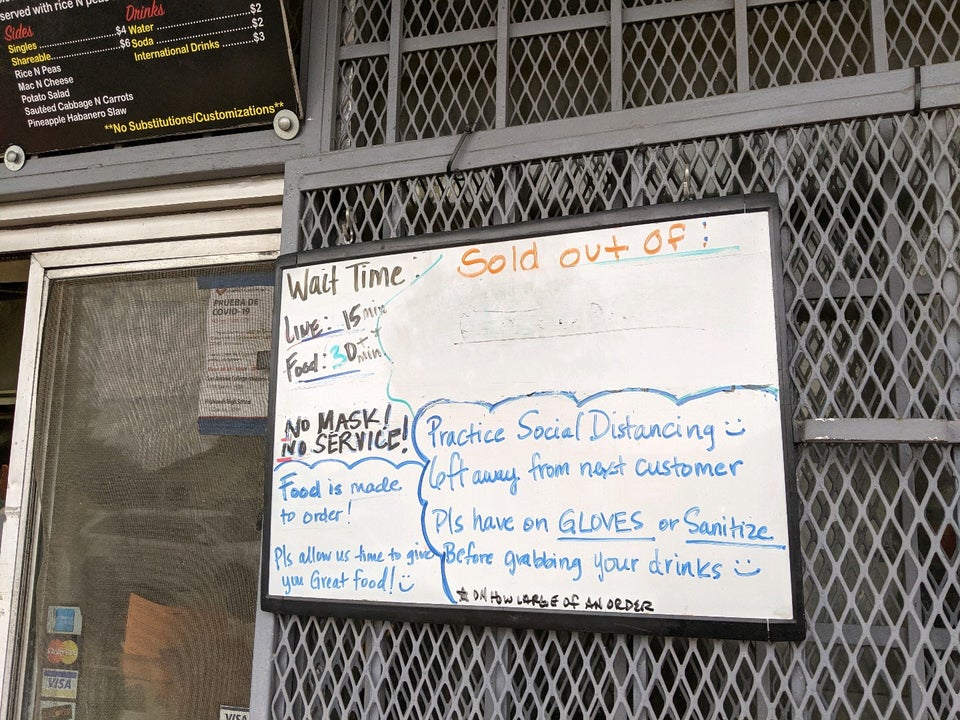 served with rice N peas
Sides
Singles ........................ $4
Shareable ..................... $6
Rice N Peas
Mac N Cheese
Potato Salad
Sautéed Cabbage N Carrots
Pineapple Habanero Slaw
Drinks
$2
Water ........................ $2
Soda ........................ $2
International Drinks ........ $3
**No Substitutions/Customizations**
PRUEBA DE
COVID-19
Wait Time:
Live: 15 min
Food: 30+ min
NO MASK!
NO SERVICE!
Food is made
to order!
Pls allow us time to give
you Great food!
Sold out of:
Practice Social Distancing
6ft away from next customer
Pls have on GLOVES or Sanitize
Before grabbing your drinks
* ON HOW LARGE OF AN ORDER
VISA
VISA